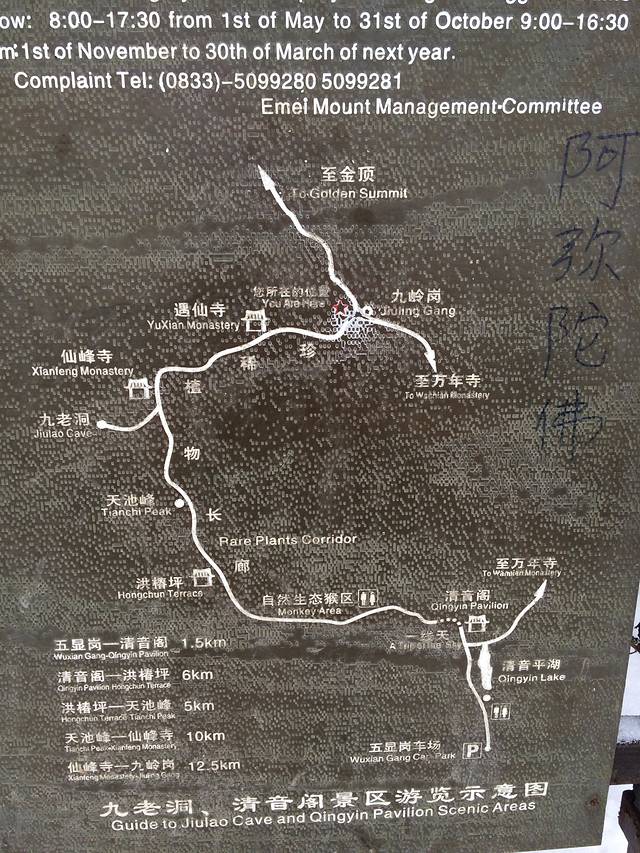 ow: 8:00-17:30 from 1st of May to 31st of October 9:00-16:30
m:1st of November to 30th of March of next year.
Complaint Tel: (0833)-5099280 5099281
Emei Mount Management-Committee
阿弥陀佛
至金顶
To Golden Summit
您所在的位置
You Are Here
九岭岗
Jiuling Gang
遇仙寺
YuXian Monastery
稀珍
植
至万年寺
To Wannian Monastery
仙峰寺
Xianfeng Monastery
九老洞
Jiulao Cave
物
天池峰
Tianchi Peak
长
Rare Plants Corridor
廊
洪椿坪
Hongchun Terrace
自然生态猴区
Monkey Area
清音阁
Qingyin Pavilion
至万年寺
To Wannian Monastery
一线天
清音平湖
Qingyin Lake
五显岗车场
Wuxian Gang Car Park
P
五显岗—清音阁 1.5km
Wuxian Gang-Qingyin Pavilion
清音阁—洪椿坪 6km
Qingyin Pavilion Hongchun Terrace
洪椿坪—天池峰 5km
Hongchun Terrace Tianchi Peak
天池峰—仙峰寺 10km
Tianchi Peak-Xianfeng Monastery
仙峰寺—九岭岗 12.5km
Xianfeng Monastery-Jiuling Gang
九老洞、清音阁景区游览示意图
Guide to Jiulao Cave and Qingyin Pavilion Scenic Areas